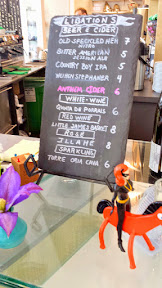 LIBATIONS
BEER & CIDER
OLD SPECKLED HEN 7
NITRO
BITTER AMERICAN 5
SESSION ALE
COUNTRY BOY IPA 5
WEIHENSTEPHANER 4
ANTHEM CIDER 6
WHITE-WINE
QUINTA DO 6
RED WINE
LITTLE JAMES BASKET 8
ROSÉ
ILLAHE 8
SPARKLING
TORRE ORIA CAVA 6